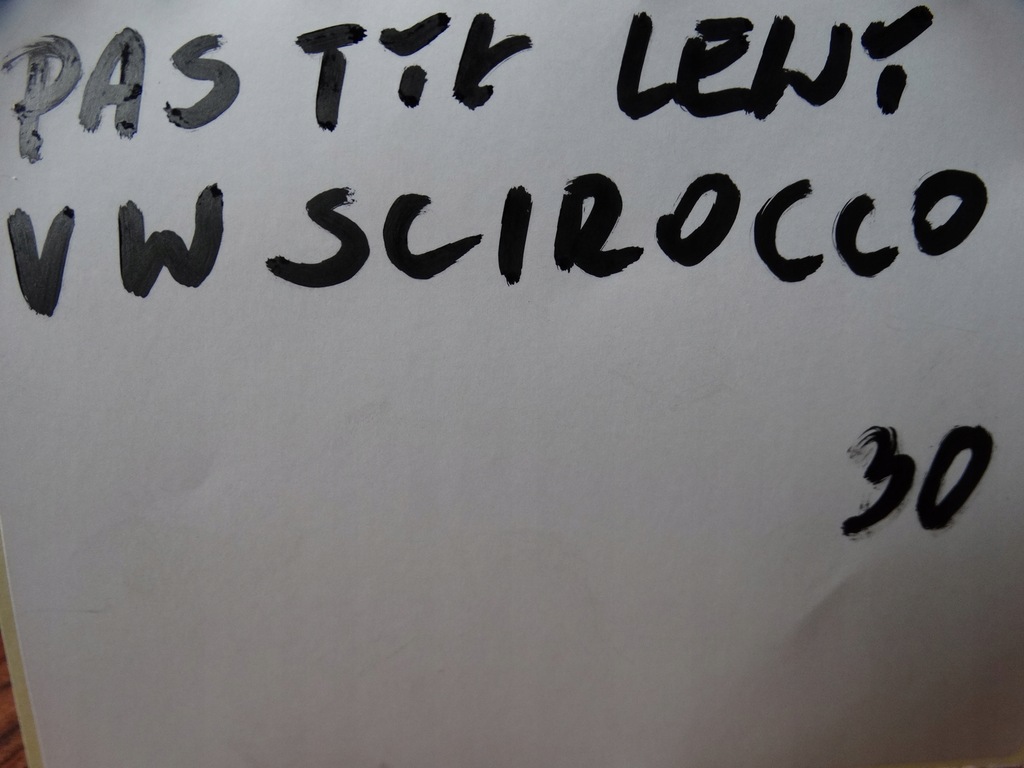 PAS TYŁ LEWY
VW SCIROCCO
30